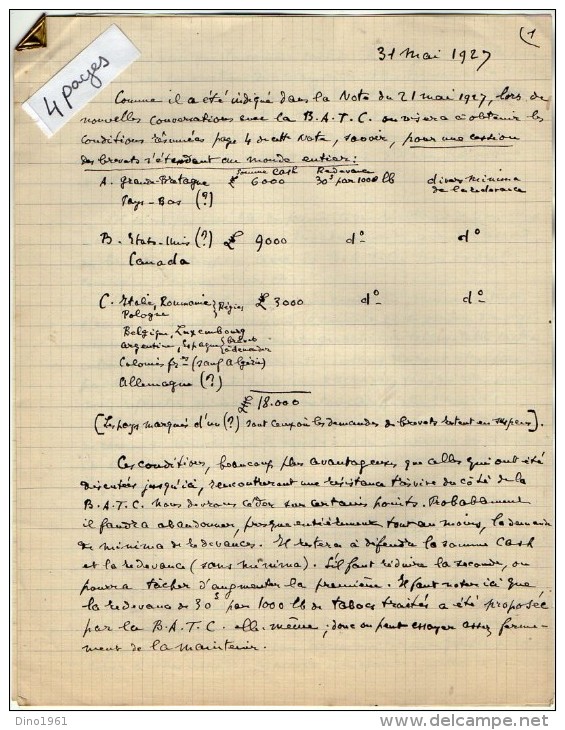 (1
31 mai 1927
4 pages
Comme il a été indiqué dans la Note du 21 mai 1927, lors de
nouvelles conversations avec la B.A.T.C. on visera à obtenir les
conditions résumées page 4 de cette Note, savoir, pour une cession
des brevets s'étendant au monde entier :
Somme Cash Redevance
A. Grande-Bretagne £ 6000 30s par 1000 lb divers minima
Pays-Bas (?) de la redevance
B. Etats-Unis (?) £ 9000 do do
Canada
C. Italie, Roumanie } Régies £ 3000 do do
Pologne
Belgique, Luxembourg
Argentine, Espagne } brevets à demander
Colonies fres (sauf Algérie)
Allemagne (?)
18.000
(Les pays marqués d'un (?) sont ceux où les demandes de brevets restent en suspens).
Ces conditions, beaucoup plus avantageuses que celles qui ont été
discutées jusqu'ici, rencontreront une résistance très vive du côté de la
B.A.T.C. Nous devrons céder sur certains points. Probablement
il faudra abandonner, presque entièrement tout au moins, la demande
de minima de redevances. Il restera à défendre la somme cash
et la redevance (sans minima). S'il faut réduire la seconde, on
pourra tâcher d'augmenter la première. Il faut noter ici que
la redevance de 30s par 1000 lb de tabacs traités a été proposée
par la B.A.T.C. elle-même ; donc on peut essayer assez ferme-
ment de la maintenir.
Dino1961
www.delcampe.net